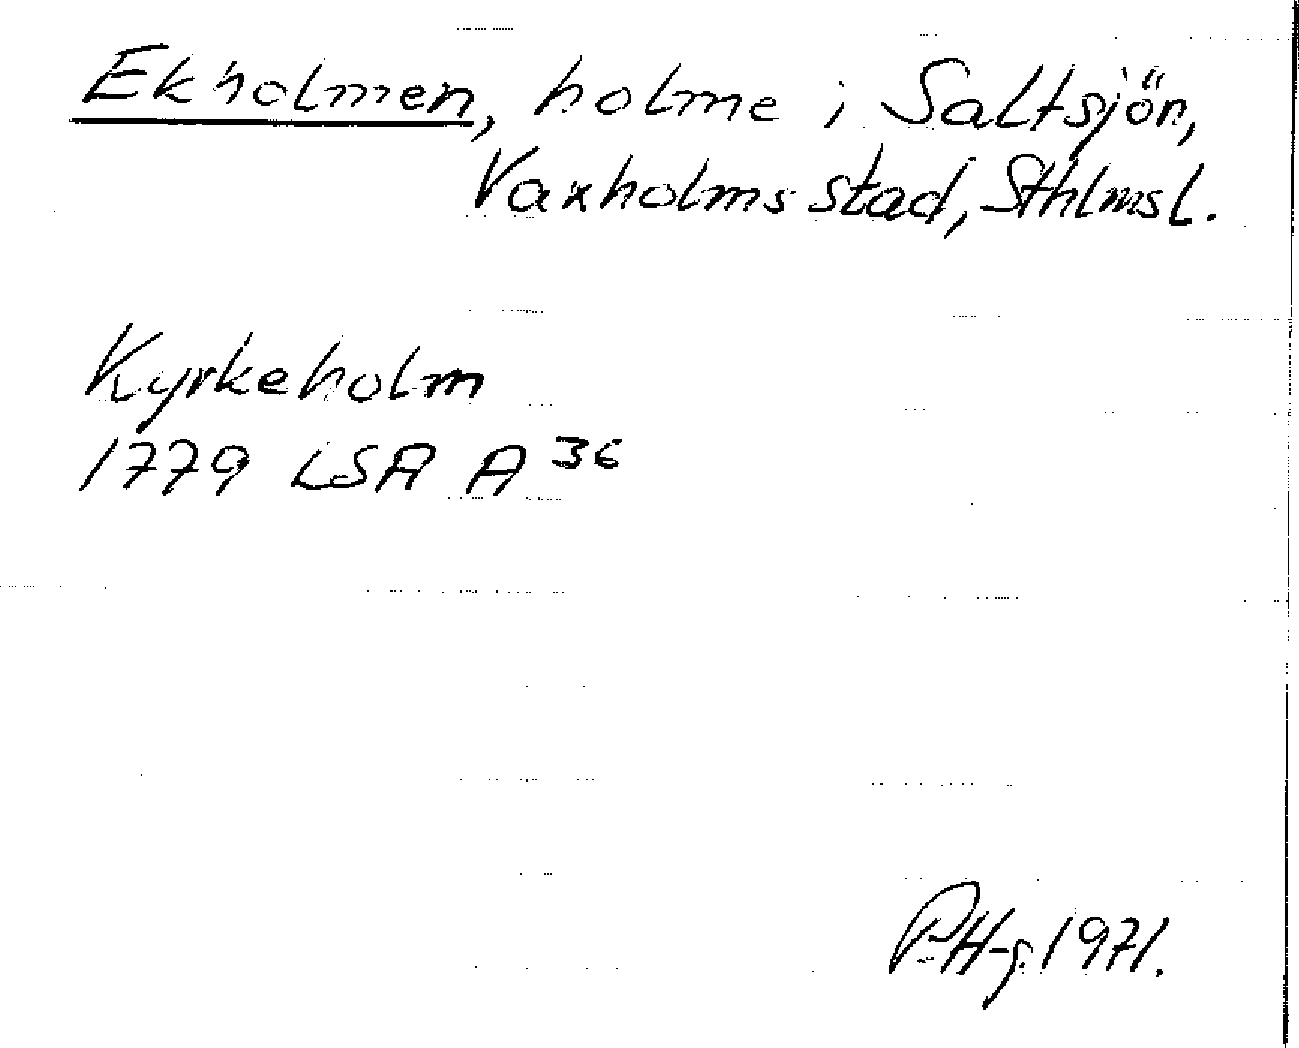 Ekholmen, holme i Saltsjön,
Vaxholms stad, Sthlmsl.
Kyrkeholm
1779 LSA A 36
P.H-g. 1971.